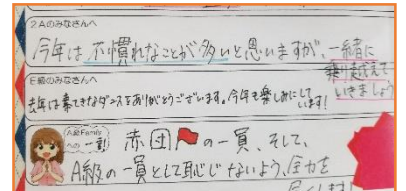 2Aのみなさんへ
今年は不慣れなことが多いと思いますが、一緒に
乗り越えて
いきましょう
E級のみなさんへ
去年は素てきなダンスをありがとうございます。今年も楽しみにして
います!
A級Family
への一言!
赤団の一員、そして、
A級の一員として恥じないよう、全力を
尽くします!